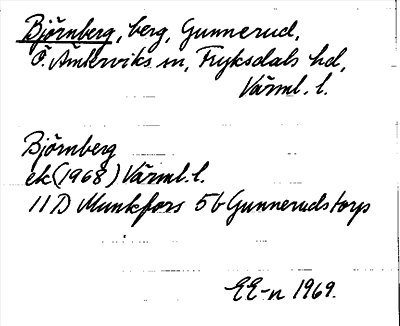 Björnberg, berg, Gunnerud,
Ö. Ämterviks sn, Fryksdals hd,
Värml. l.
Björnberg
ek (1968) Värml. l.
11D Munkfors 5b Gunnerudstorp
EE-n 1969.